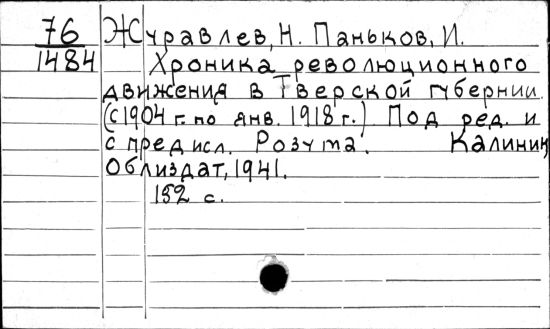 76
1484
Журавлев, Н. Паньков, И.
Хроника революционного
движения в Тверской губернии.
(с 1904 г. по янв. 1918 г.) Под ред. и
с предисл. Розума. Калинин,
Облиздат, 1941.
152 с.